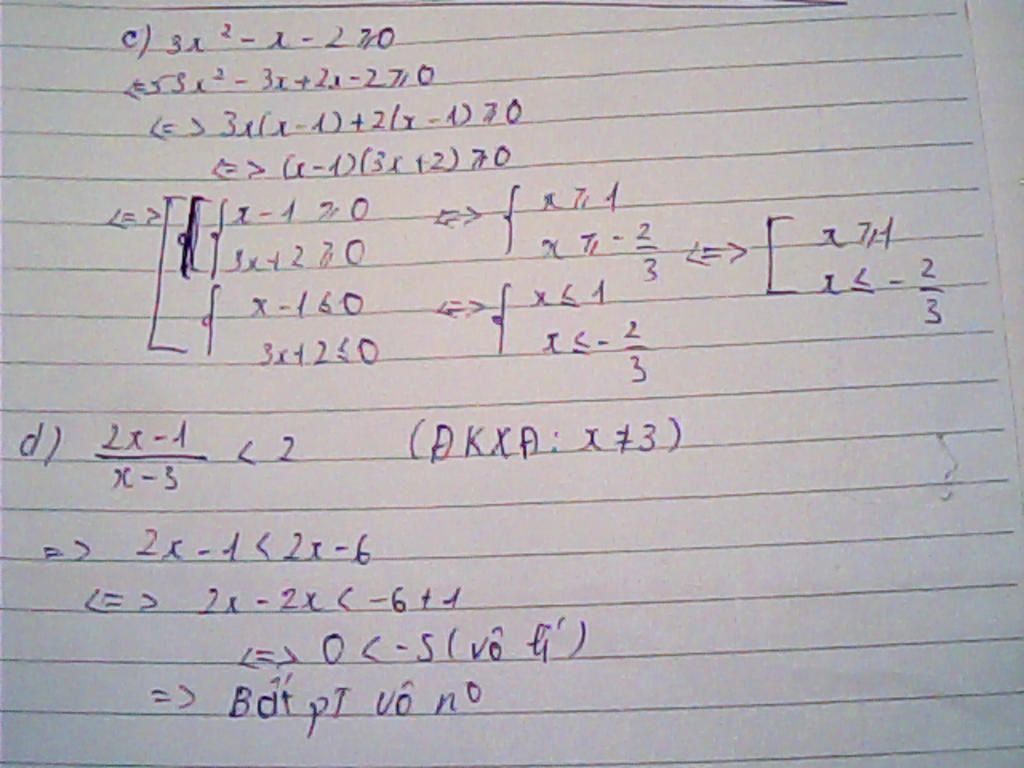 c) 3x² - x - 2 ≥ 0
<=> 3x² - 3x + 2x - 2 ≥ 0
<=> 3x(x - 1) + 2(x - 1) ≥ 0
<=> (x - 1)(3x + 2) ≥ 0
<=> [ { x - 1 ≥ 0 <=> { x ≥ 1
3x + 2 ≥ 0 x ≥ - 2/3 <=> [ x ≥ 1
{ x - 1 ≤ 0 <=> { x ≤ 1 x ≤ - 2/3
3x + 2 ≤ 0 x ≤ - 2/3
d) (2x - 1)/(x - 3) < 2 (ĐKXĐ: x ≠ 3)
=> 2x - 1 < 2x - 6
<=> 2x - 2x < -6 + 1
<=> 0 < -5 (vô lí)
=> Bất pT vô n⁰